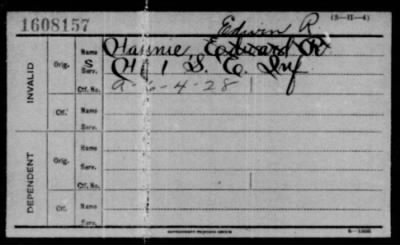 1608157
(3-11-4)
Edwin R.
INVALID
Orig.
Name
Hannie, Edward R
S
Serv.
H 1 S. C. Inf
Ctf. No.
a-6-4-28
Ctf.
Name
Serv.
DEPENDENT
Orig.
Name
Serv.
Ctf. No.
Ctf.
Name
Serv.
GOVERNMENT PRINTING OFFICE